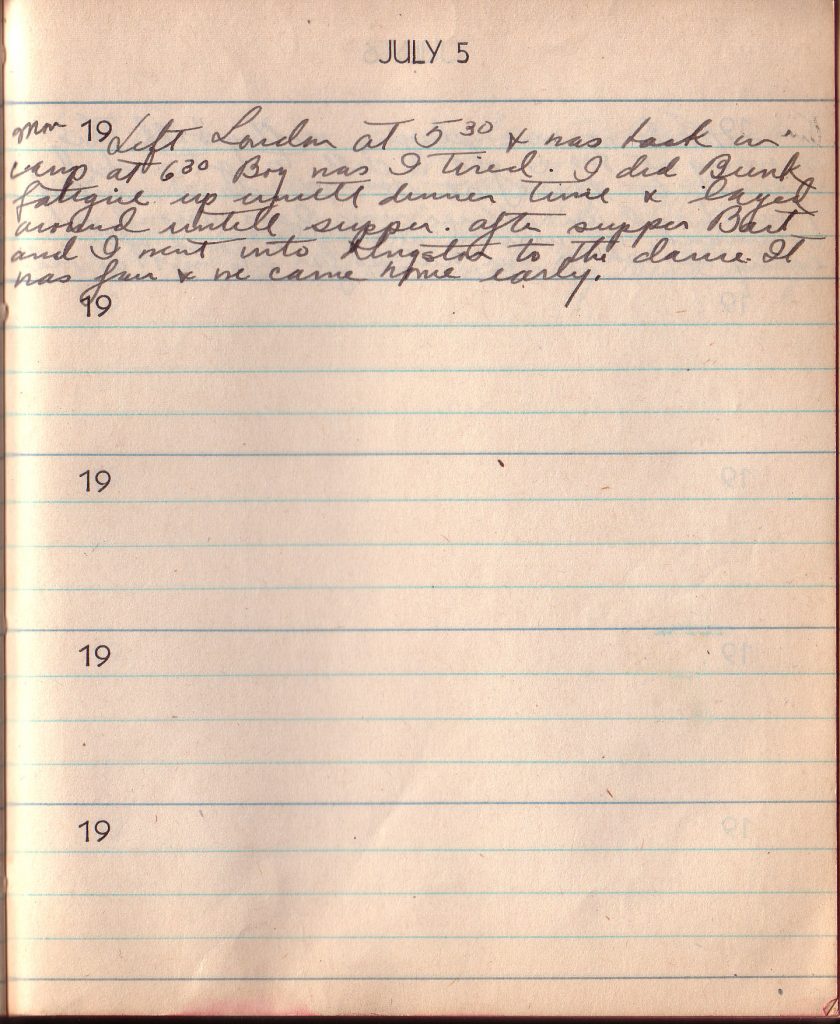 JULY 5
Mon 19 Left London at 5 30 & was back in
camp at 6 30 Boy was I tired. I did Bunk
fatigue up untill dinner time & layed
around untill supper. after supper Bart
and I went into Kingston to the dance. It
was fair & we came home early.
19
19
19
19